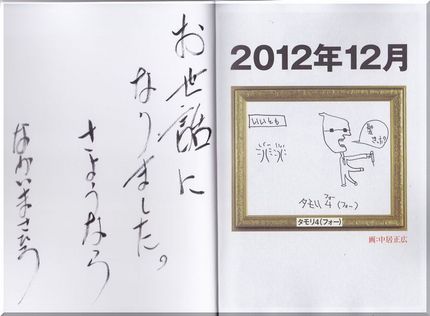 お世話に
なりました。
さようなら
なかいまさひろ
2012年12月
いいとも
タモリ4(フォー)
タモリ4(フォー)
画:中居正広